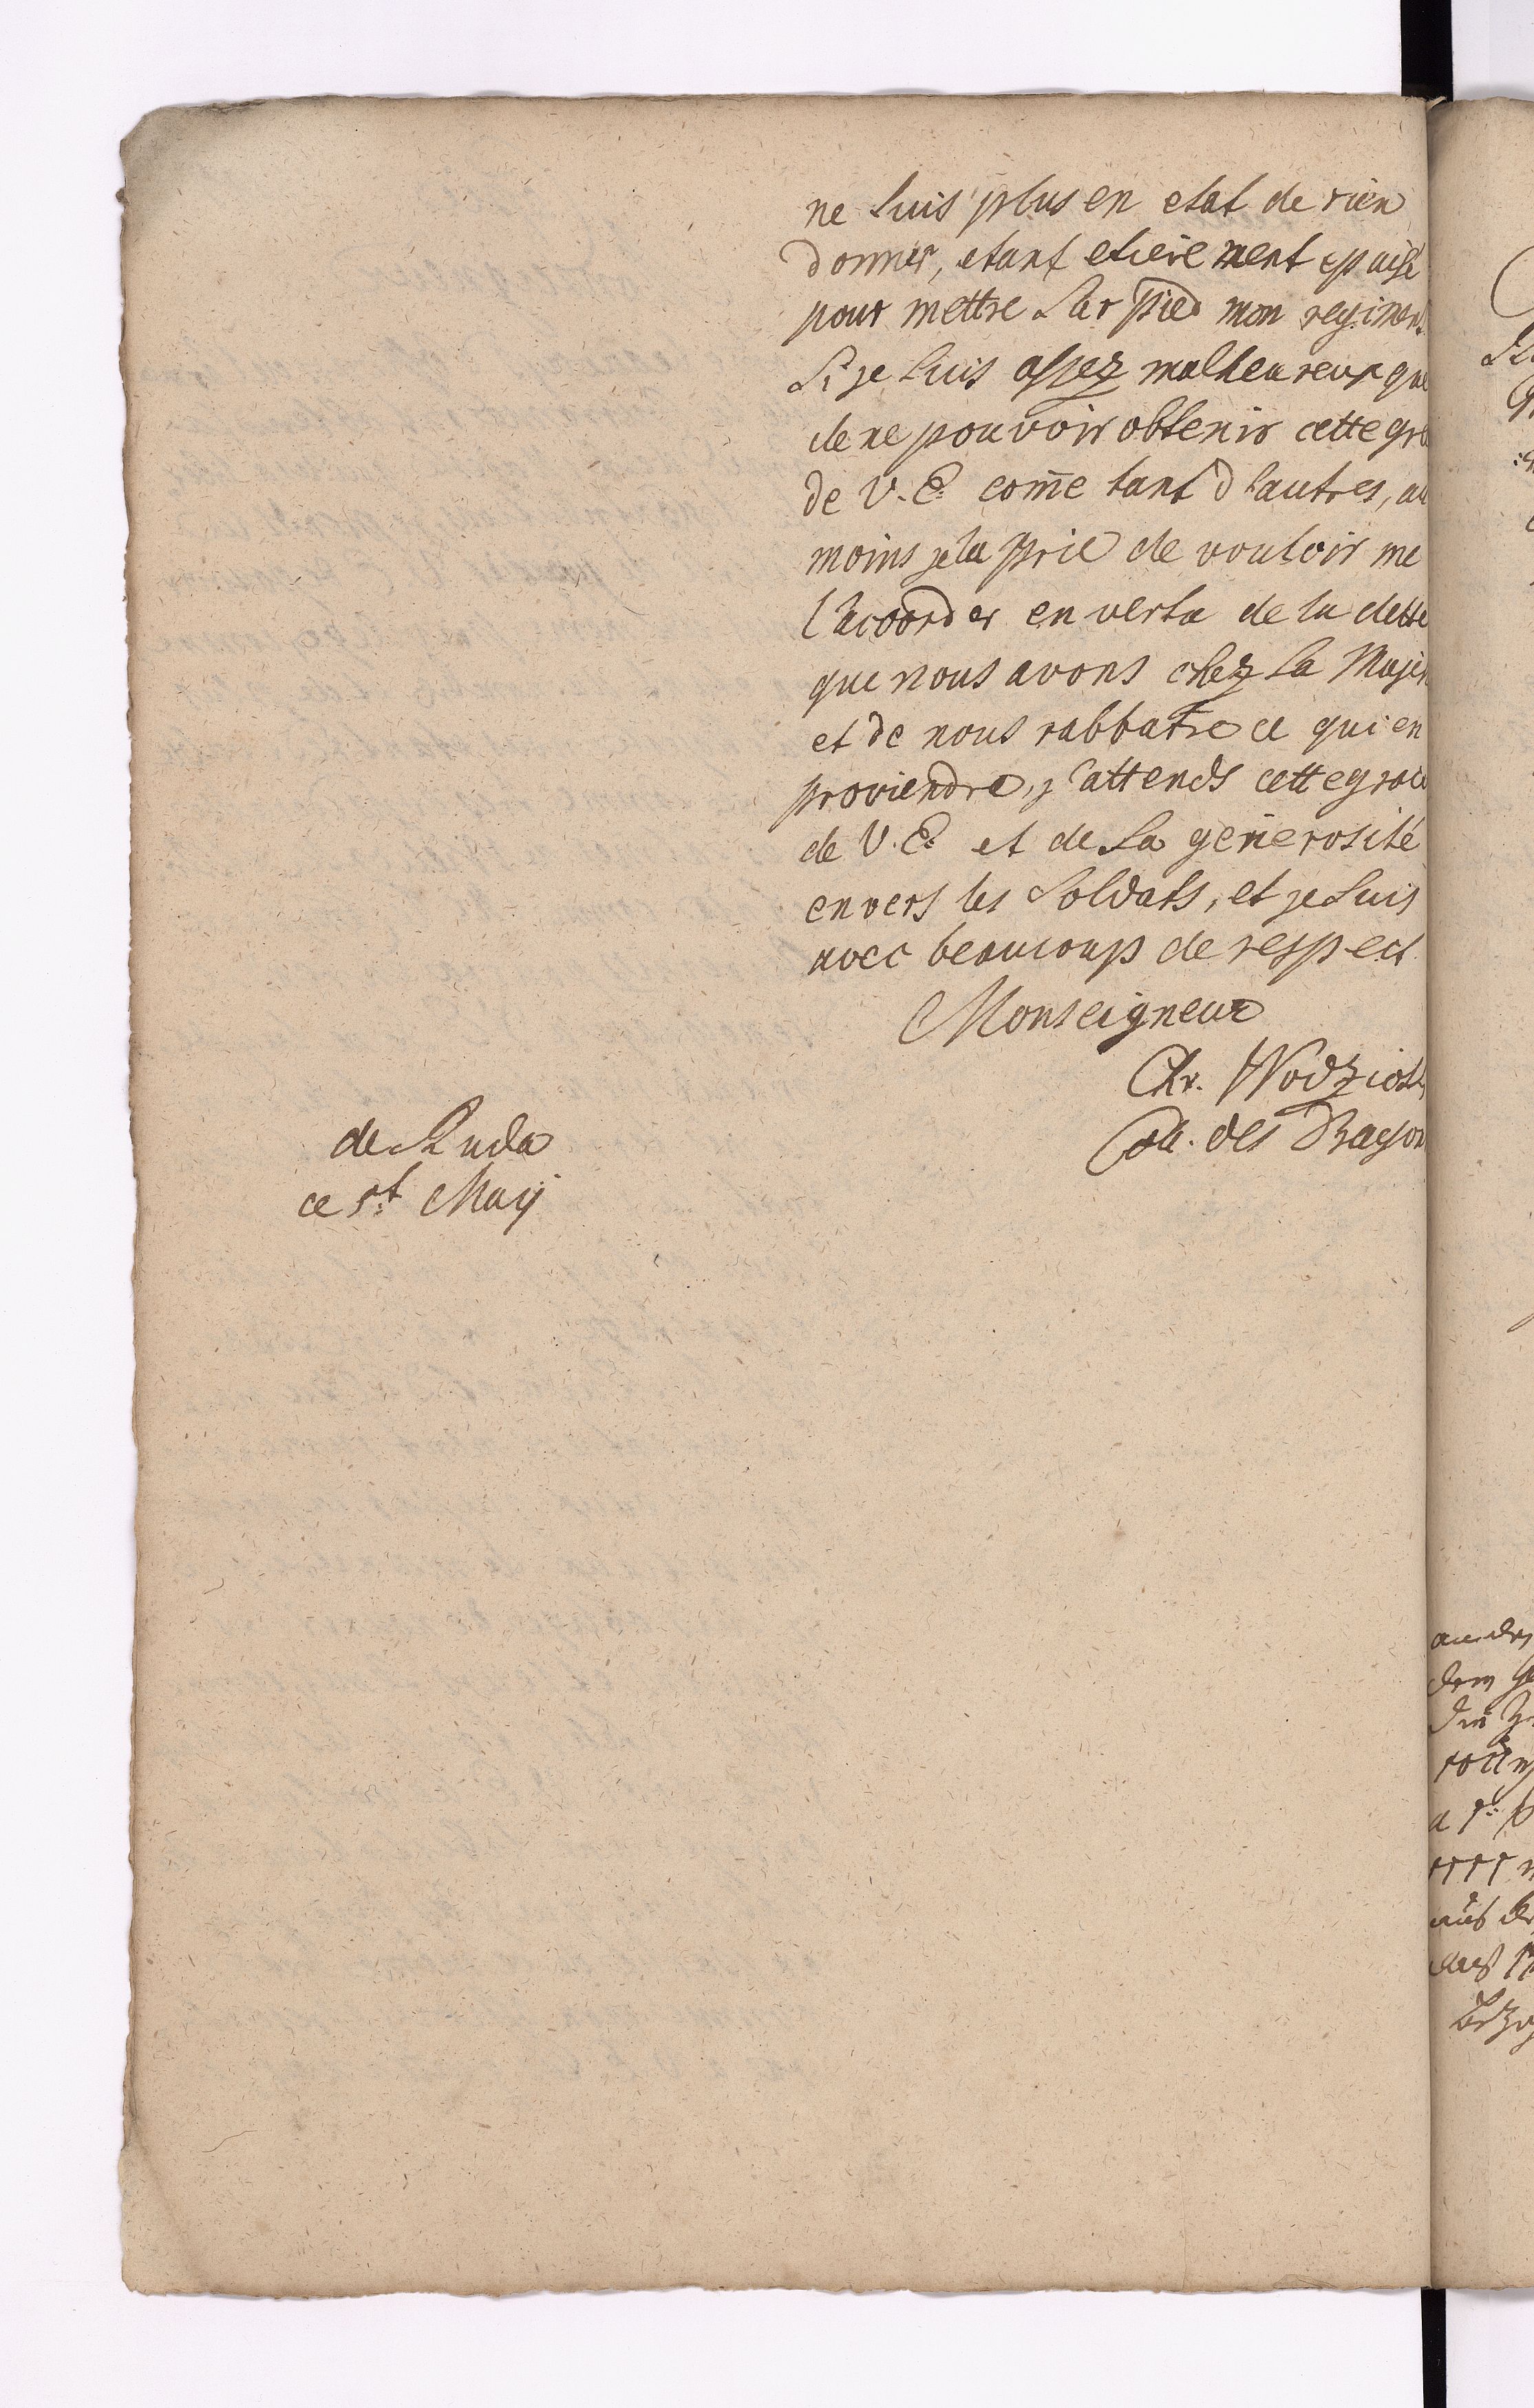 ne suis plus en etat de rien
donner, etant etierement epuisé
pour mettre sur pied mon regiment
Si je suis assez malheureux que
de ne pouvoir obtenir cette gra
de V. E. com̄e tant d'autres, au
moins je la prie de vouloir me
l'acoorder en vertu de la dette
que nous avons chez Sa Majes
et de nous rabbatre ce qui en
proviendra, j'attends cette grace
de V. E. et de Sa génerosité
envers les Soldats, et je suis
avec beaucoup de respect
Monseigneur
Chr. Wodzick
Col. des Dragon
de Ruda
ce 5t May